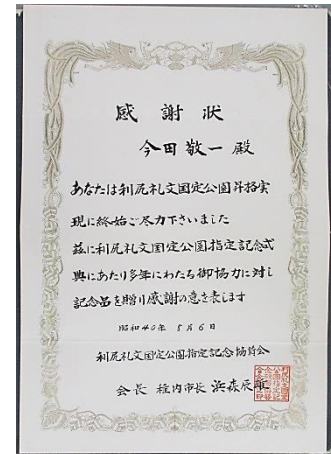 感謝状
今田敬一殿
あなたは利尻礼文国定公園昇格実
現に終始ご尽力下さいました
茲に利尻礼文国定公園指定記念式
典にあたり多年にわたる御協力に対し
記念品を贈り感謝の意を表します
昭和40年 8月6日
利尻礼文国定公園指定記念協賛会
会長 稚内市長 浜森辰雄